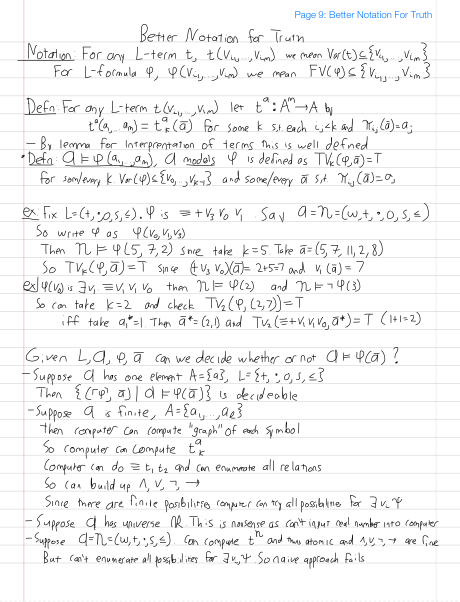 Page 9: Better Notation For Truth
Better Notation for Truth
Notation: For any L-term t, t(v_i₁,...,v_iₘ) we mean Var(t)⊆{v_i₁,...,v_iₘ}
For L-formula φ, φ(v_i₁,...,v_iₘ) we mean FV(φ)⊆{v_i₁,...,v_iₘ}
Defn: For any L-term t(v_i₁,...,v_iₘ) let t^a: A^m→A by
t^a(a₁,...,aₘ)=t_k^a(ā) for some k s.t. each i_j<k and π_i_j(ā)=a_j
- By lemma for interpretation of terms this is well defined
• Defn: a⊨φ(a₁,...,aₘ), a models φ is defined as TV_k(φ,ā)=T
for some/every k Var(φ)⊆{v₀,...,v_k-1} and some/every ā s.t. π_i_j(ā)=a_j
ex: Fix L=(+,·,0,S,≤). φ is ≡+v₃v₀v₁. Say a=n=(ω,+,·,0,S,≤)
So write φ as φ(v₀,v₁,v₃)
Then n⊨φ(5,7,2) since take k=5. Take ā=(5,7,11,2,8)
So TV_k(φ,ā)=T since (+v₃v₀)(ā)=2+5=7 and v₁(ā)=7
ex: φ(v₀) is ∃v₁≡+v₁v₁v₀ then n⊨φ(2) and n⊨¬φ(3)
So can take k=2 and check TV₂(φ,(2,7))=T
iff take a₁*=1. Then ā*=(2,1) and TV₂(≡+v₁v₁v₀,ā*)=T (1+1=2)
Given L,a,φ,ā can we decide whether or not a⊨φ(ā)?
- Suppose a has one element A={a}, L={+,·,0,S,≤}
Then {(⌜φ⌝,ā)|a⊨φ(ā)} is decideable
- Suppose a is finite, A={a₁,...,a_ℓ}
Then computer can compute "graph" of each symbol
So computer can compute t_k^a
Computer can do ≡t₁t₂ and can enumerate all relations
So can build up ∧,∨,¬,→
Since there are finite possibilities computer can try all possibilities for ∃v_iψ
- Suppose a has universe ℝ. This is nonsense as can't input real number into computer
- Suppose a=n=(ω,+,·,S,≤). Can compute t^n and thus atomic and ∧,∨,¬,→ are fine
But can't enumerate all possibilities for ∃v_iψ. So naive approach fails